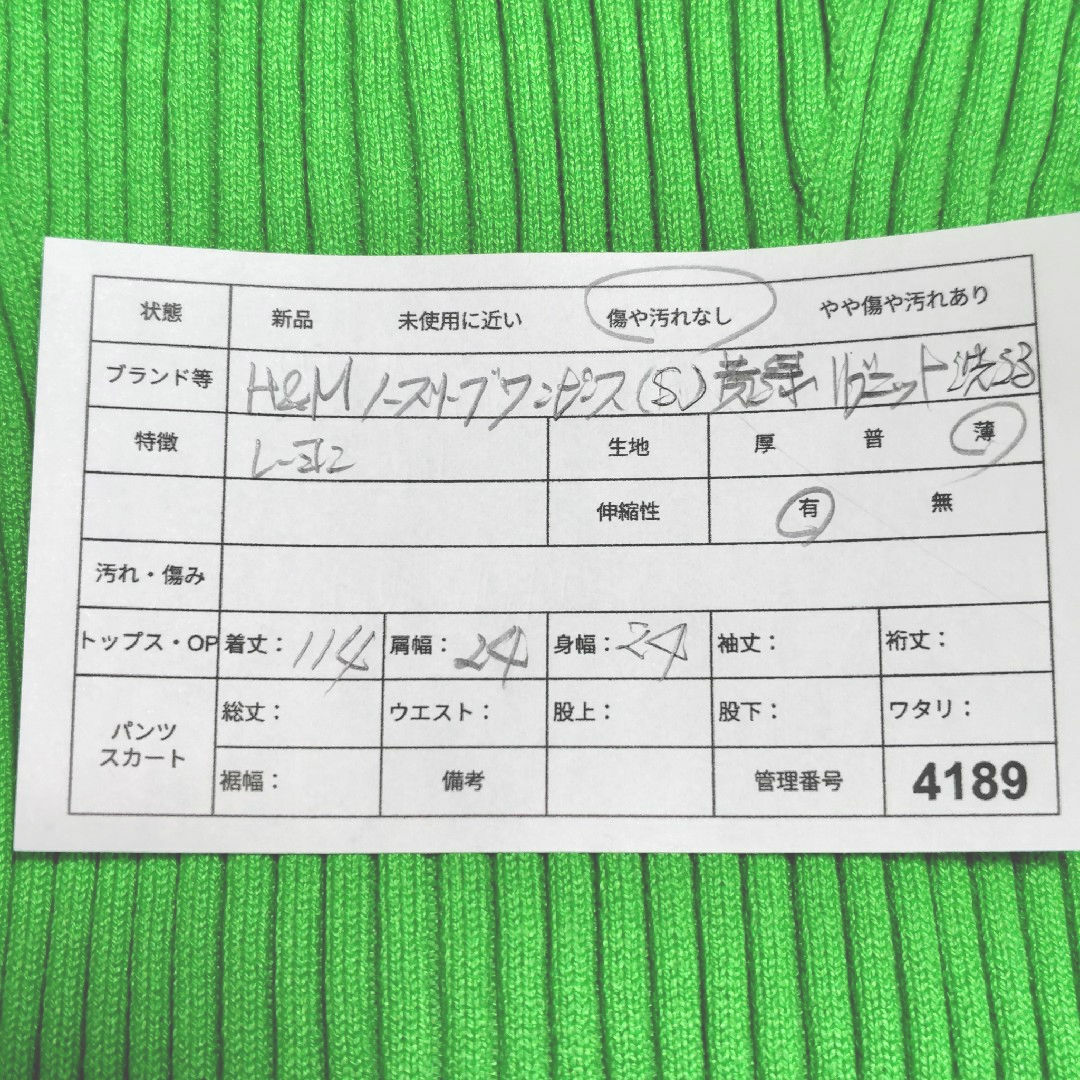 状態 新品 未使用に近い 傷や汚れなし やや傷や汚れあり
ブランド等 H&M ノースリーブワンピース (S) 黄緑 リブニット 洗える
特徴 レーヨン 生地 厚 普 薄
伸縮性 有 無
汚れ・傷み
トップス・OP 着丈: 114 肩幅: 24 身幅: 24 袖丈: 裄丈:
パンツ スカート 総丈: ウエスト: 股上: 股下: ワタリ:
裾幅: 備考 管理番号 4189